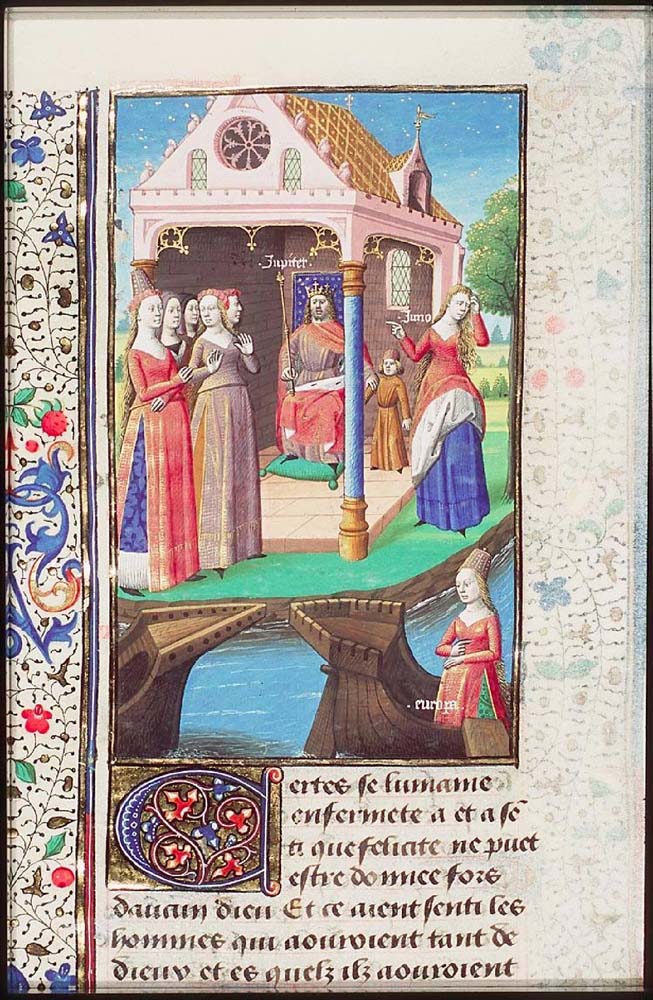 Jupiter
Juno
europa
Certes se lumaine
enfermete a et a sē
ti que felicite ne puet
estre donnee fors
daucun dieu Et ce aient senti les
hommes qui aouroient tant de
dieux et es quelz ilz aouroient